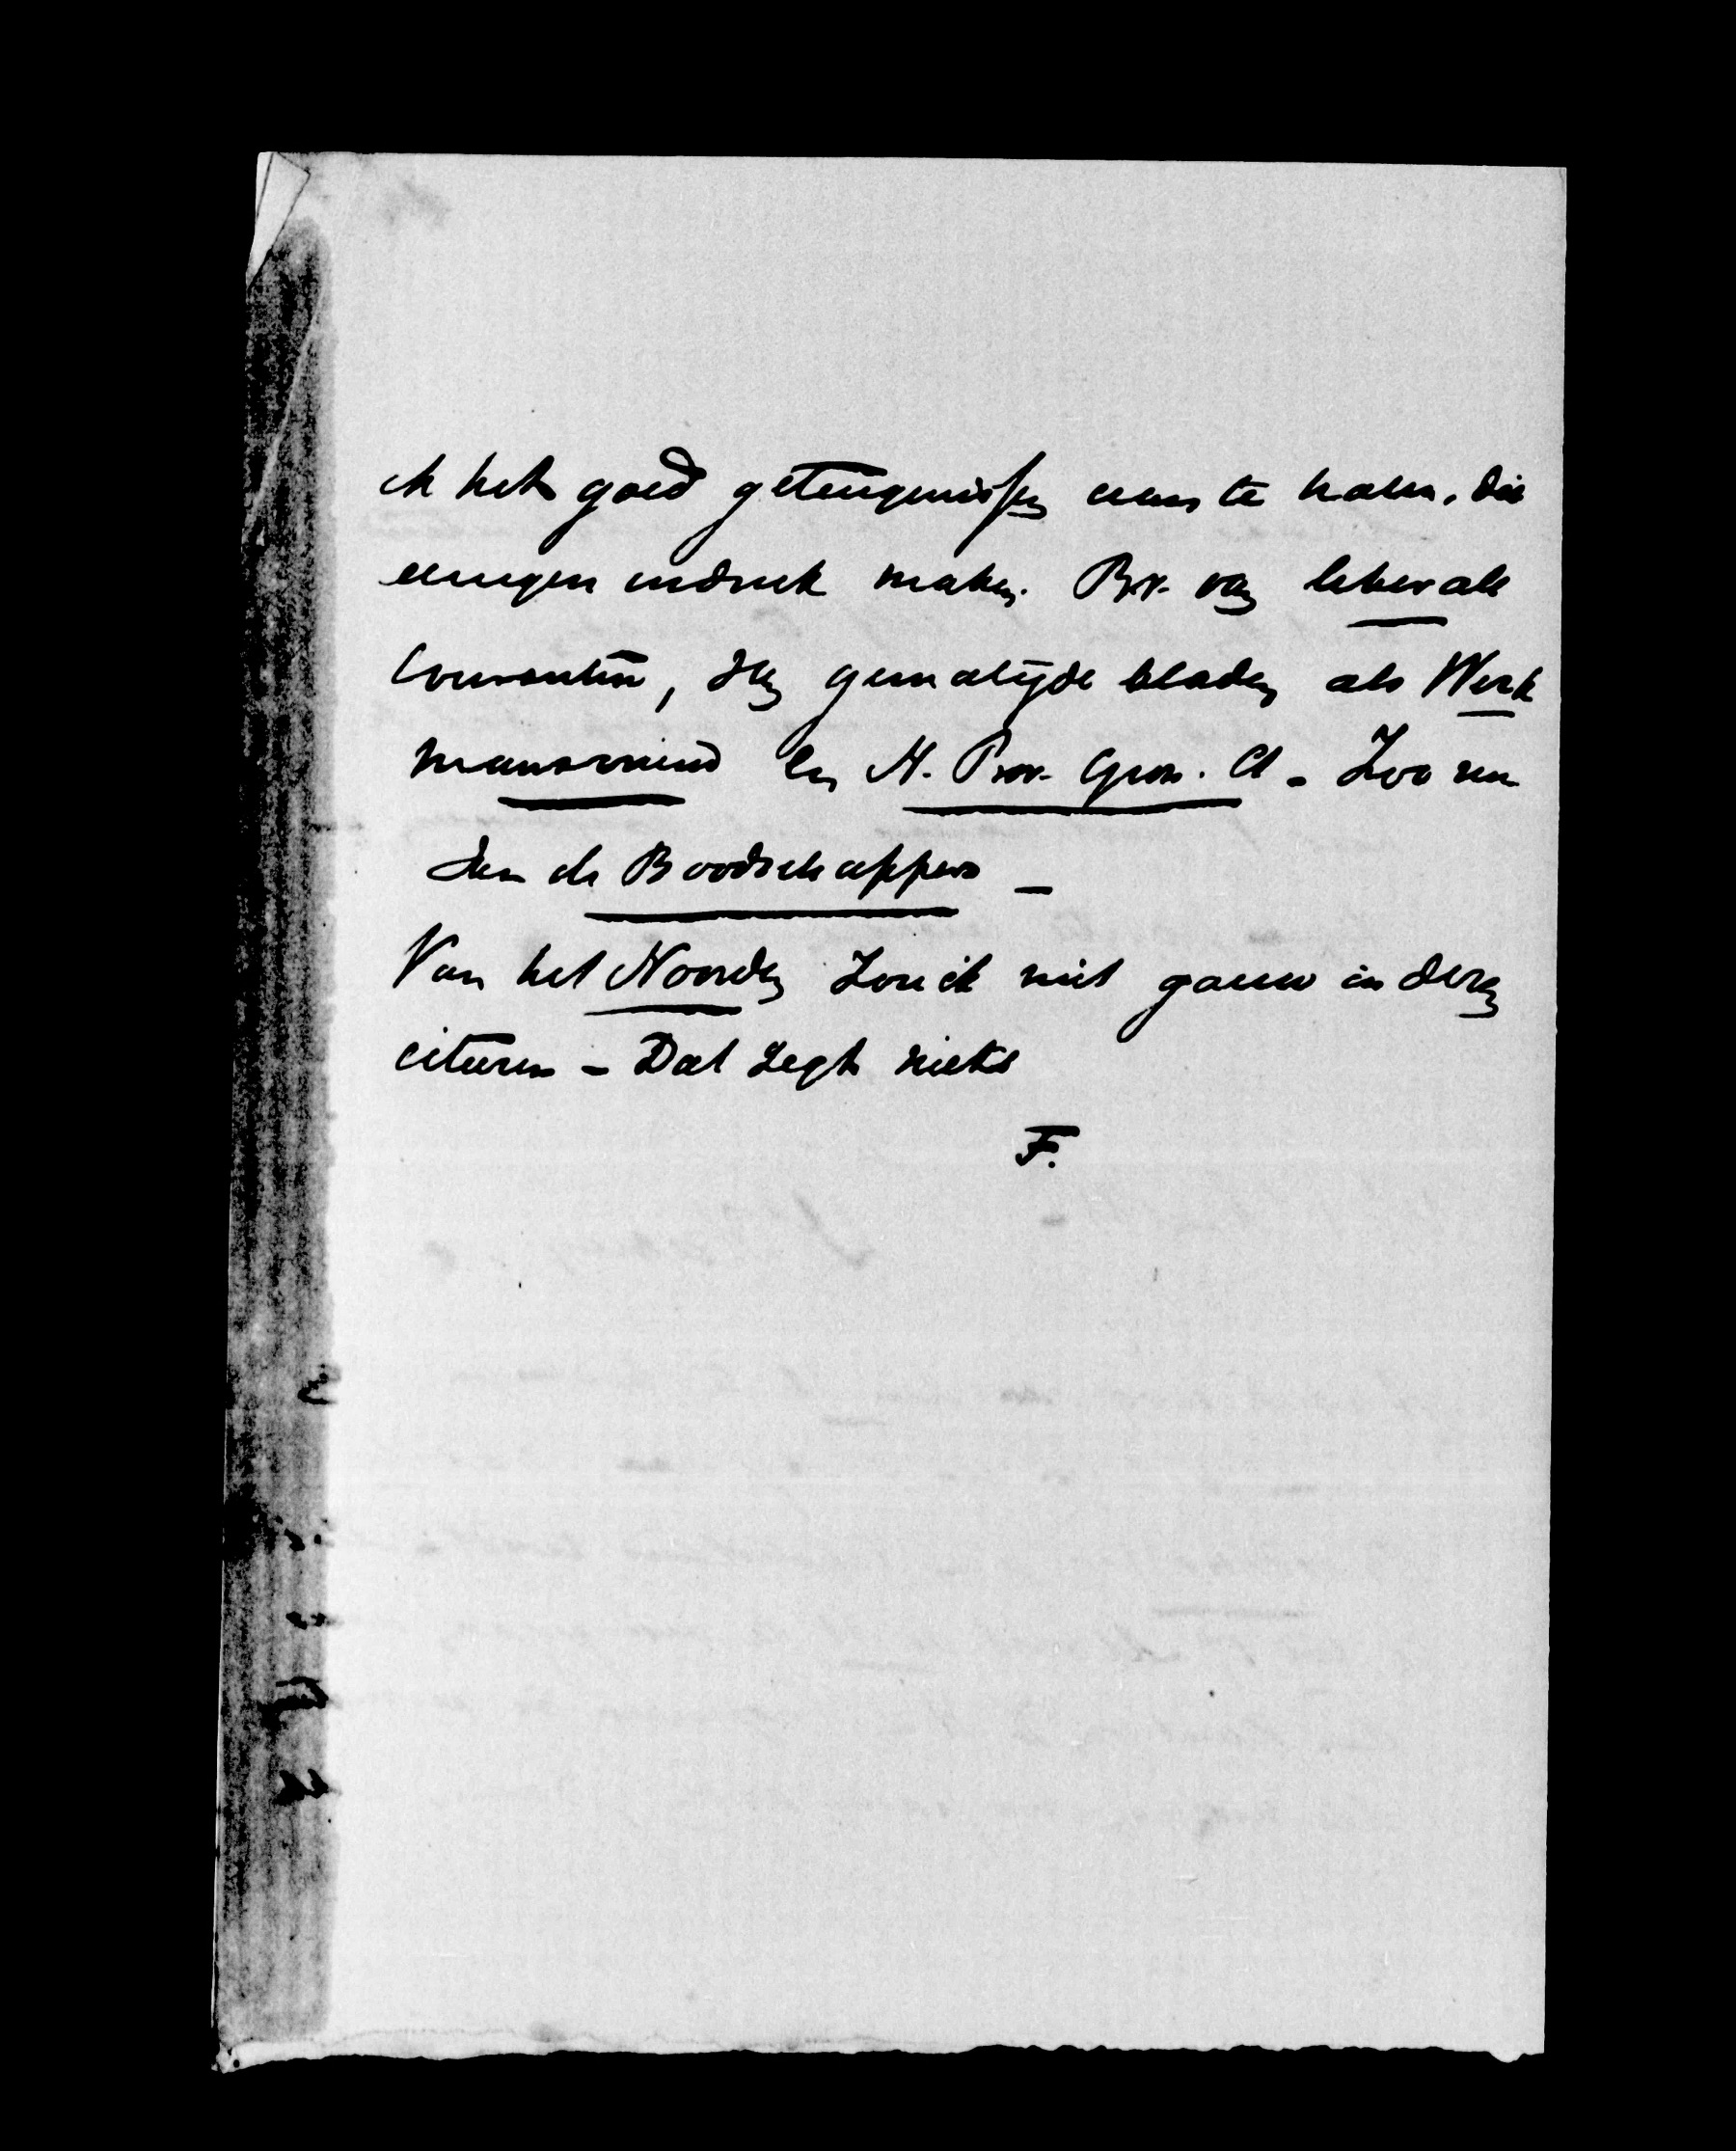 ik het goed getuigenissen aan te halen, die
eenigen indruk maken. B.v. van liberale
Couranten, den gematigde bladen als Werk
mansvriend en N. Prov. Gron. Ct. - Zoo een
den de Boodschapper -
Van het Noorden zou ik niet gauw in dezen
citeeren - Dat zegt niets
F.